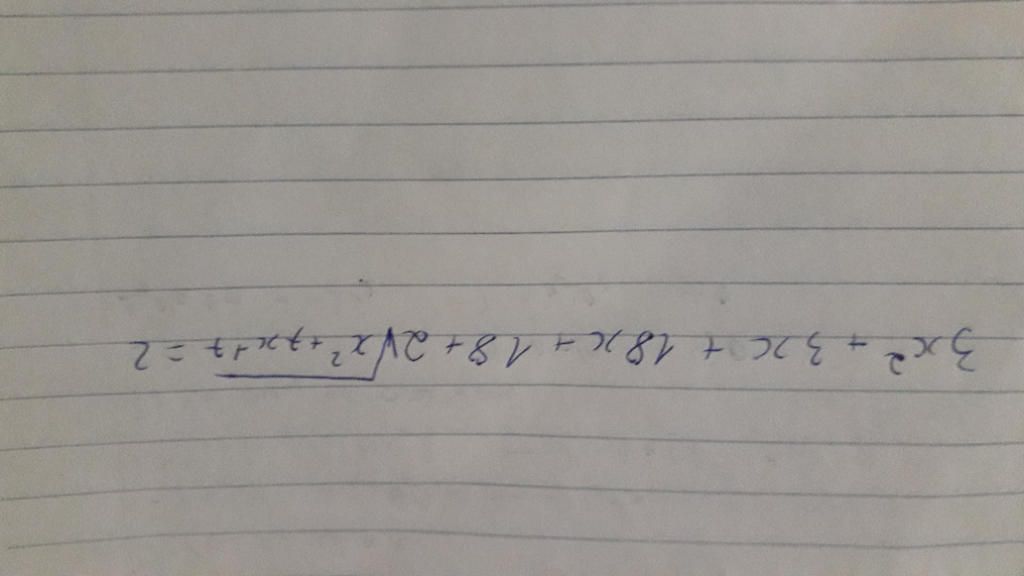 3x² + 3x + 18x + 18 + 2√x²+7x+7 = 2